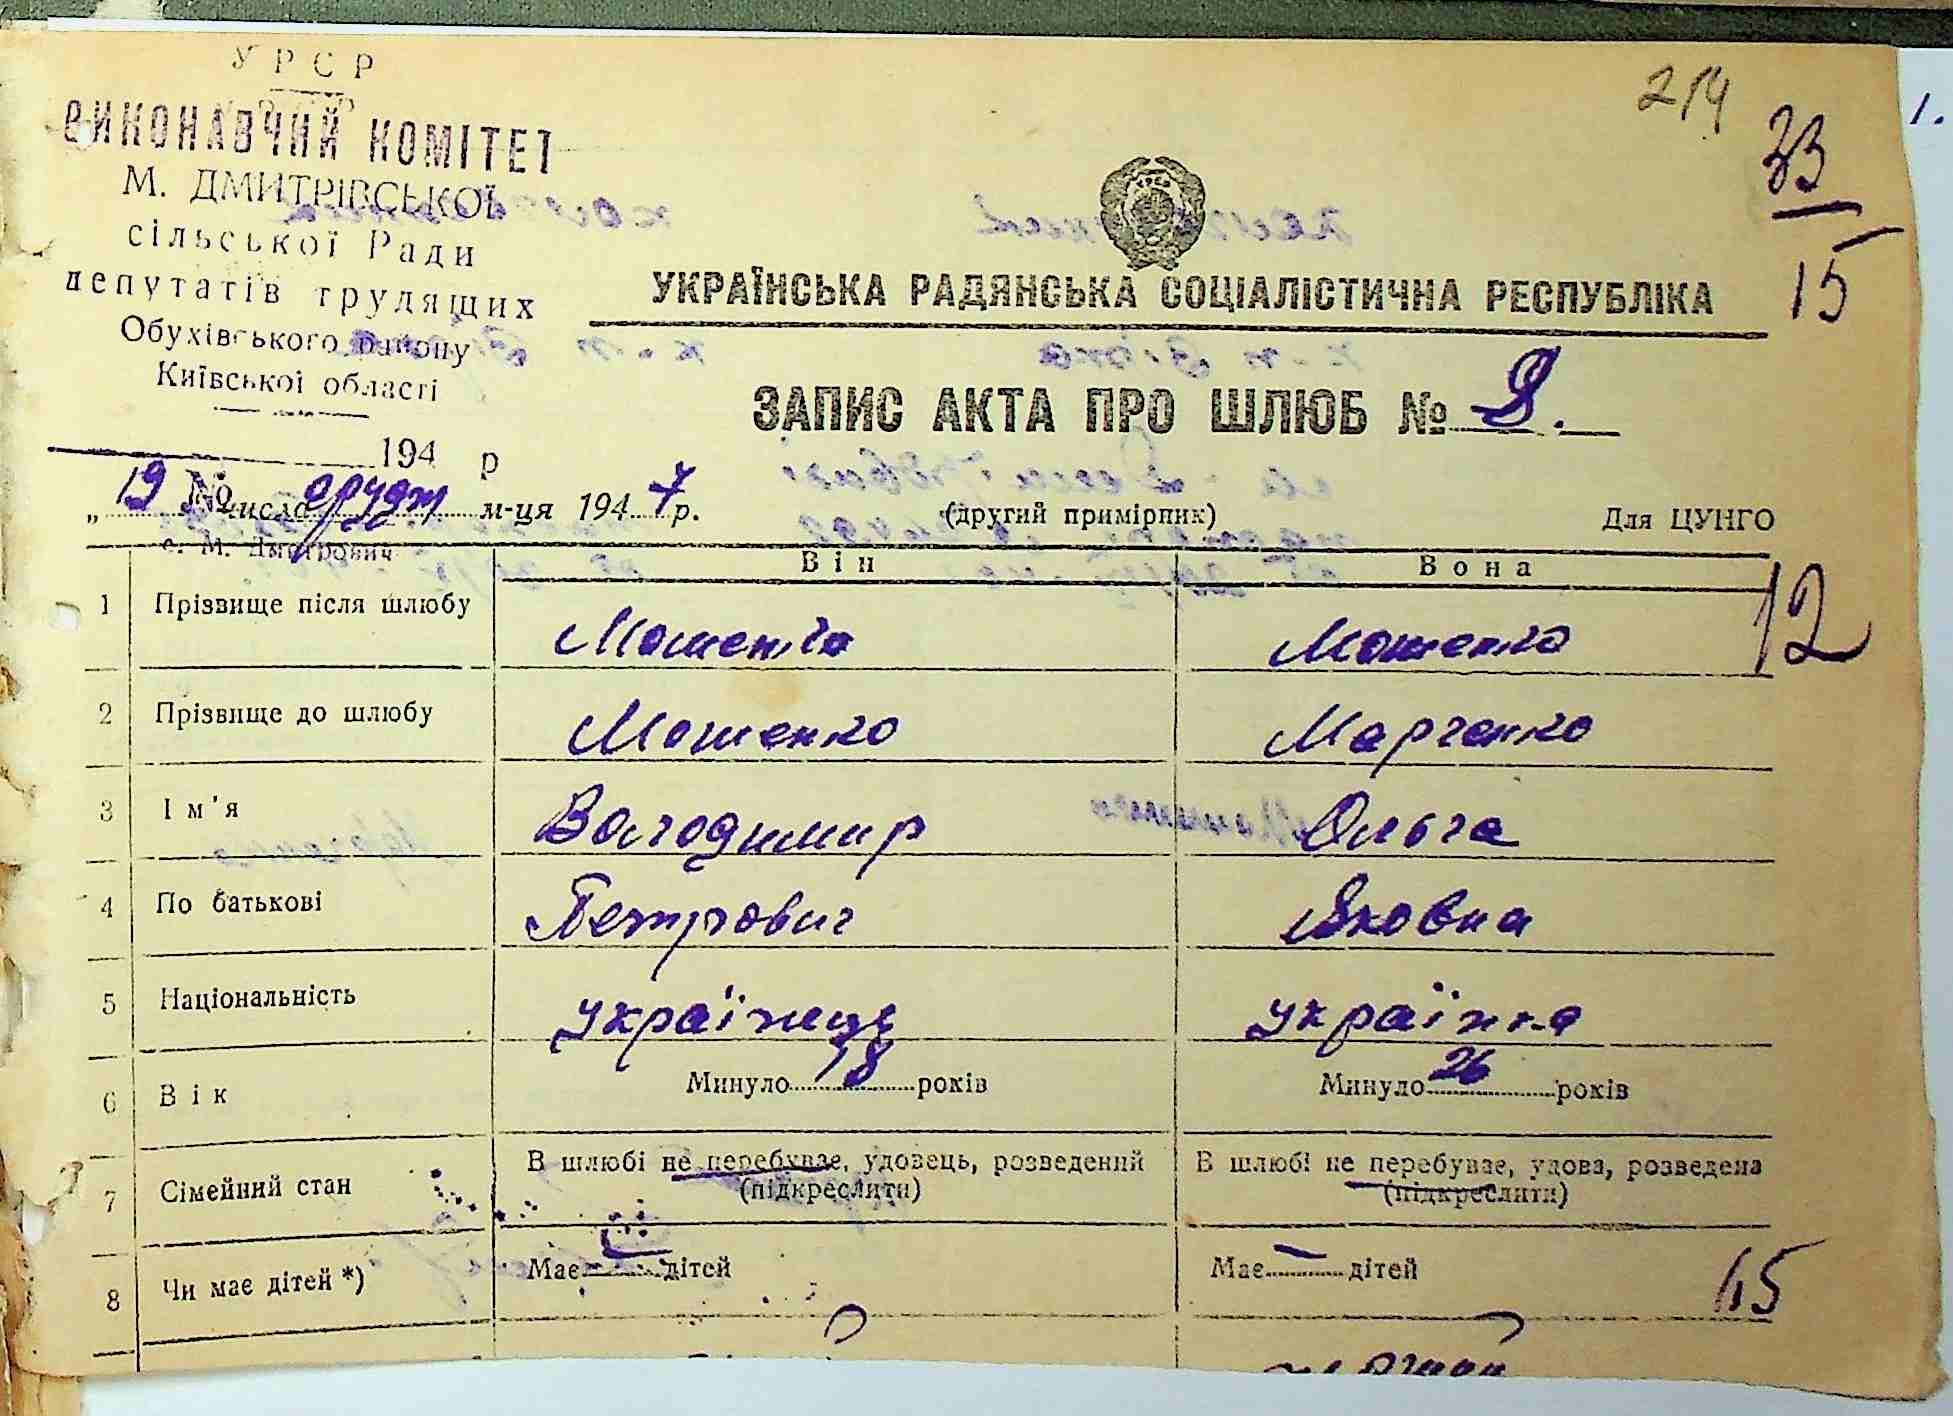 УРСР
ВИКОНАВЧИЙ КОМІТЕТ
М. ДМИТРІВСЬКОЇ
сільської Ради
депутатів трудящих
Обухівського району
Київської області
194 р
№
с. М. Дмитрович
214
33
15
1.
УКРАЇНСЬКА РАДЯНСЬКА СОЦІАЛІСТИЧНА РЕСПУБЛІКА
ЗАПИС АКТА ПРО ШЛЮБ № 8.
„19 числа грудт м-ця 1947 р.
(другий примірник)
Для ЦУНГО
Він Вона
12
1 Прізвище після шлюбу Мошенко Мошенко
2 Прізвище до шлюбу Мошенко Марченко
3 Ім'я Володимир Ольга
4 По батькові Петрович Яковна
5 Національність українець українка
6 Вік Минуло 18 років Минуло 26 років
7 Сімейний стан В шлюбі не перебуває, удовець, розведений (підкреслити) В шлюбі не перебуває, удова, розведена (підкреслити)
8 Чи має дітей *) Має дітей Має — дітей
15